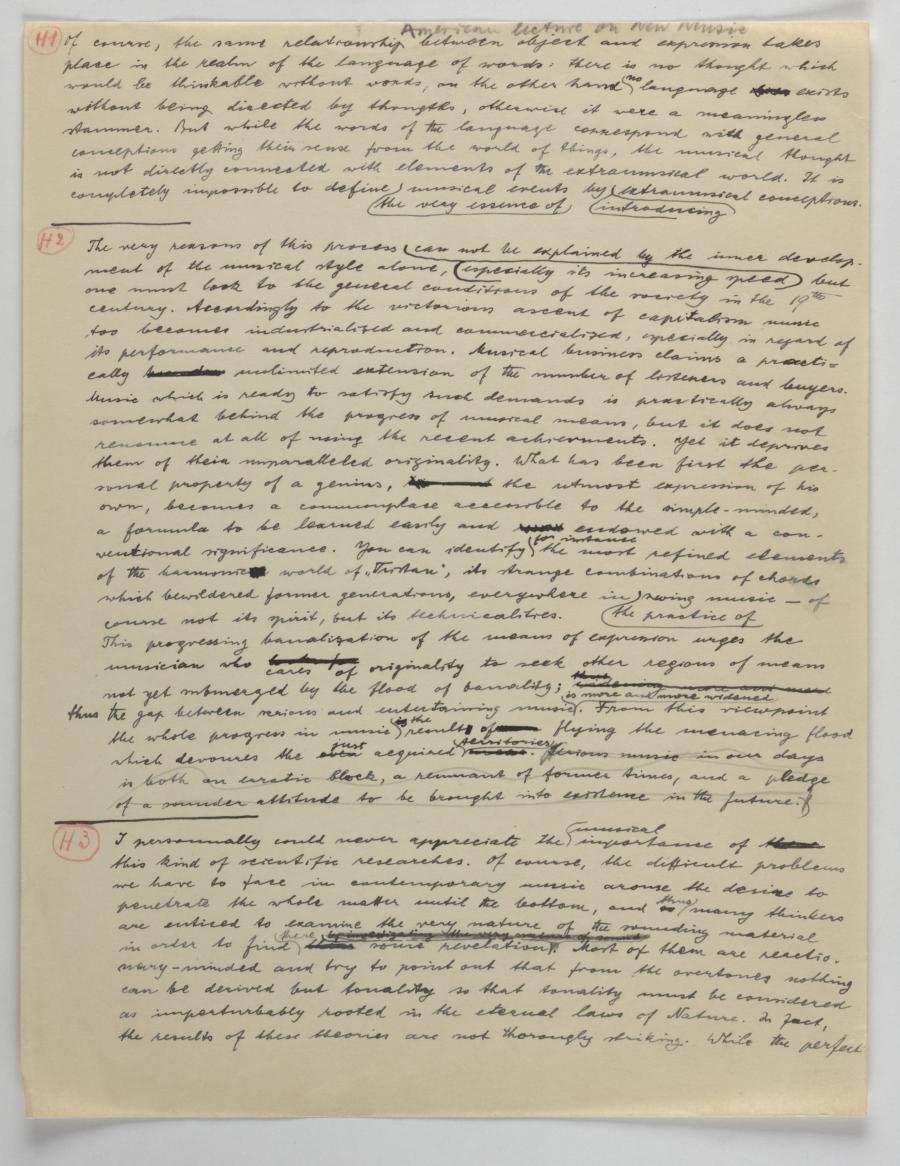 American lecture on New Music
H1 Of course, the same relationship between object and expression takes
place in the realm of the language of words: there is no thought which
would be thinkable without words, on the other hand no language exists
without being directed by thougths, otherwise it were a meaningless
stammer. But while the words of the language correspond with general
conceptions getting their sense from the world of things, the musical thought
is not directly connected with elements of the extramusical world. It is
completely impossible to define musical events by extramusical conceptions.
the very essence of introducing
H2 The very reasons of this process can not be explained by the inner develop-
ment of the musical style alone, especially its increasing speed, but
one must look to the general conditions of the society in the 19th
century. Accordingly to the victorious ascent of capitalism music
too becomes industrialized and commercialized, especially in regard of
its performance and reproduction. Musical business claims a practi=
cally unlimited extension of the number of listeners and buyers.
Music which is ready to satisfy such demands is practically always
somewhat behind the progress of musical means, but it does not
renounce at all of using the recent achievments. Yet it deprives
them of their unparalleled originality. What has been first the per-
sonal property of a genius, the utmost expression of his
own, becomes a commonplace accessible to the simple-minded,
a formula to be learned easily and endowed with a con-
for instance
ventional significance. You can identify the most refined elements
of the harmonic world of „Tristan", its strange combinations of chords
which bewildered former generations, everywhere in swing music — of
course not its spirit, but its technicalities. the practice of
This progressing banalization of the means of expression urges the
musician who cares of originality to seek other regions of means
not yet submerged by the flood of banality;
is more and more widened
thus the gap between serious and entertaining music. From this viewpoint
the whole progress in music is the result of flying the menacing flood
which devoures the just acquired territories. Serious music in our days
is both an erratic block, a remnant of former times, and a pledge
of a sounder attitude to be brought into existence in the future.
musical
H3 I personnally could never appreciate the importance of
this kind of scientific researches. Of course, the difficult problems
we have to face in contemporary music arouse the desire to
penetrate the whole matter until the bottom, and thus many thinkers
are enticed to examine the very nature of the sounding material
in order to find there some revelation. Most of them are reactio-
nary-minded and try to point out that from the overtones nothing
can be derived but tonality so that tonality must be considered
as imperturbably rooted in the eternal laws of Nature. In fact,
the results of these theories are not thorougly striking. While the perfect